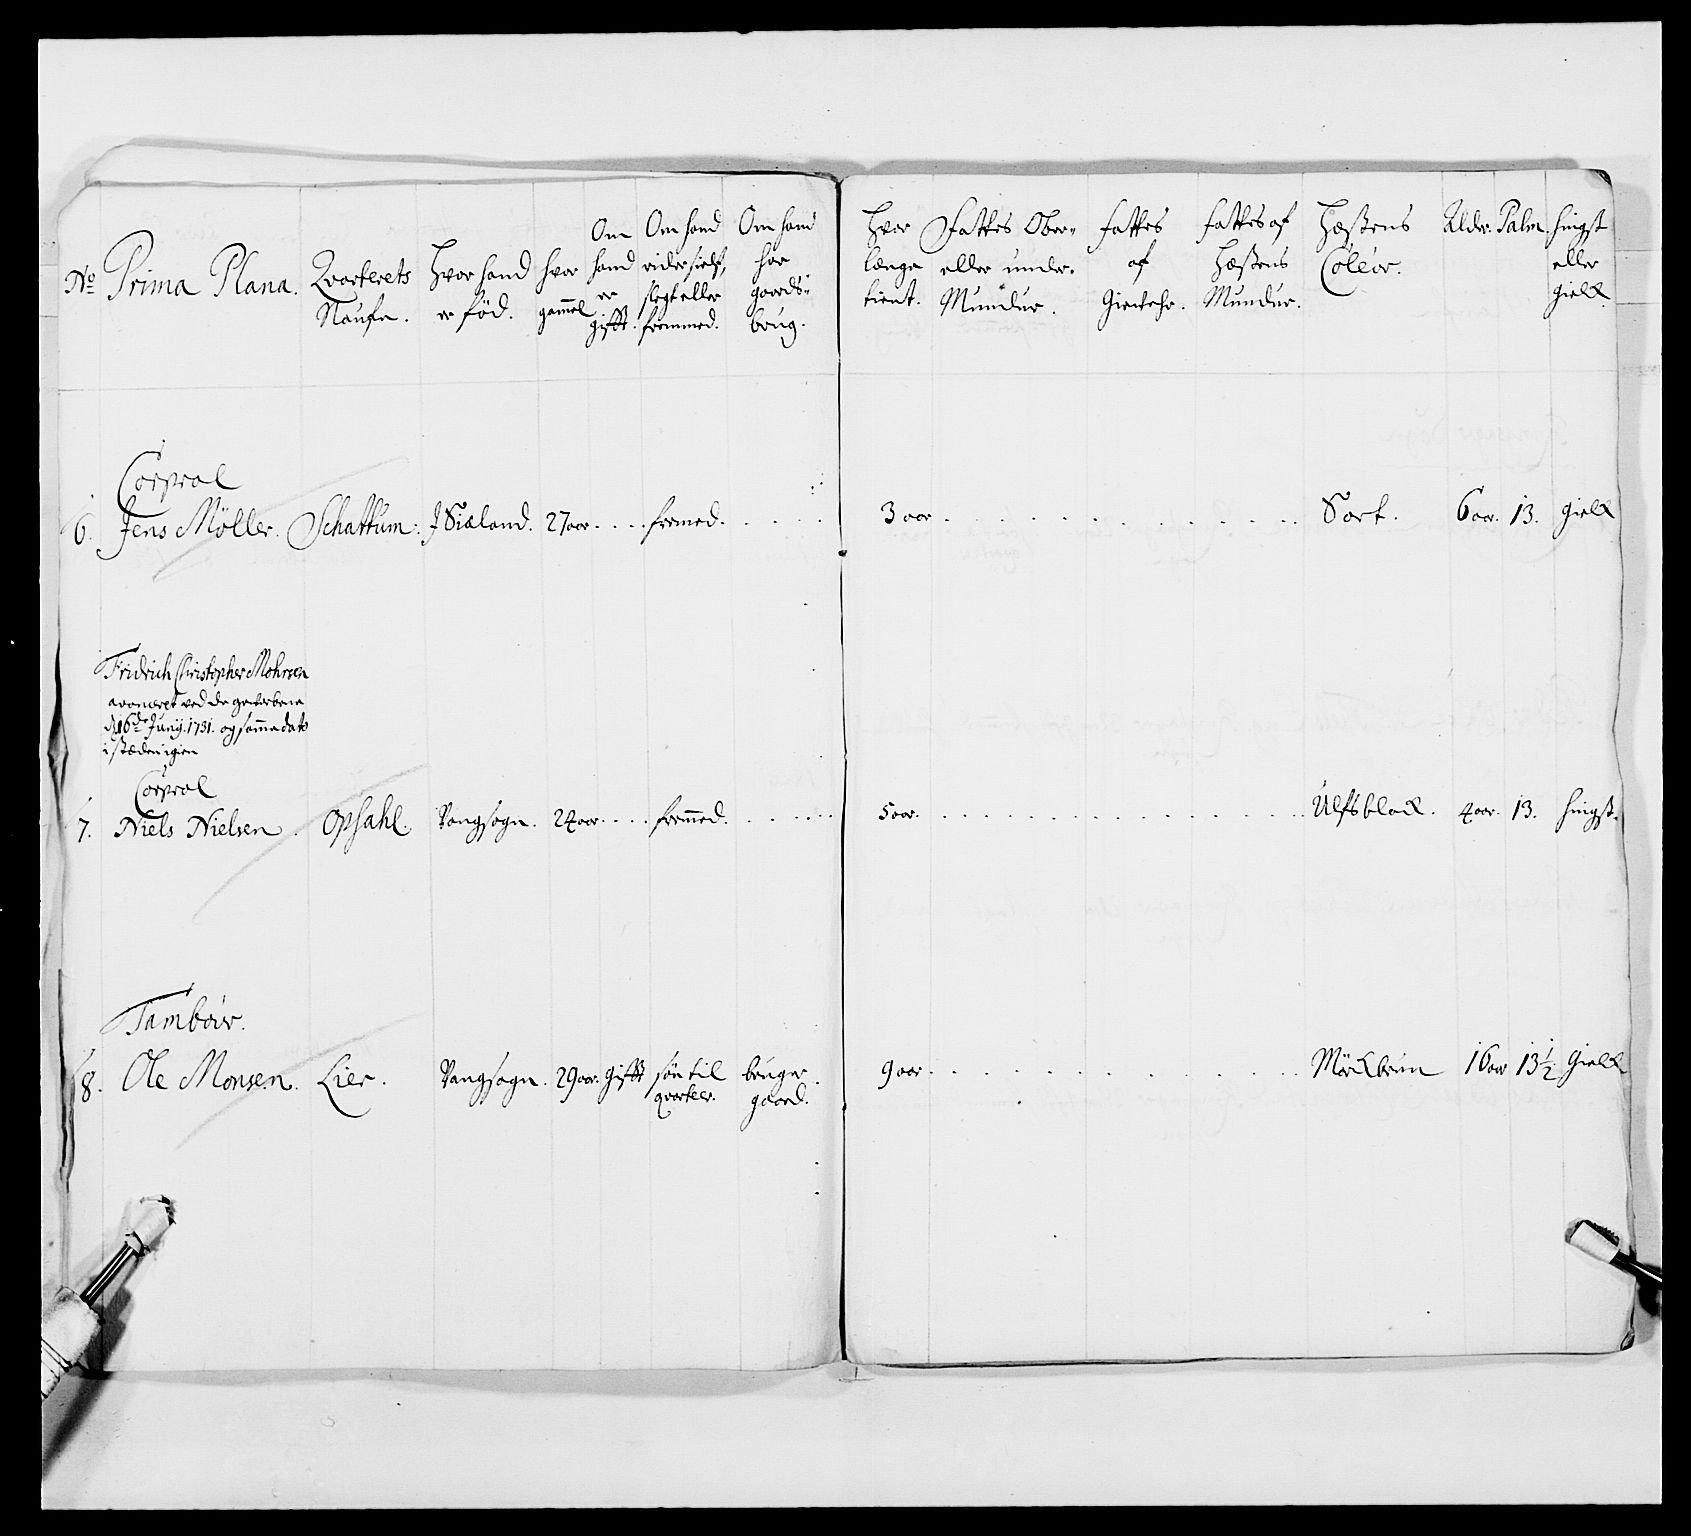 No Prima Plana. Qvarterets Naufn. Hvor hand er föd. hvor gammel Om hand er gifft. Om hand rider sielf, slegt eller fremmed. Om hand har gaards- brug. Hvor længe tient. Fattes Ober- eller under- Mundur. fattes af Giewehr. fattes af Hæstens Mundur. Hæstens Coleör. Alder. Palm. hingst eller gield.
Corpral
6. Jens Möller. Schattum. J Siæland. 27 aar. .... fremed. .... 3 aar. .... Sort. 6 aar. 13. gield
Fridrich Christopher Mohrsen
avanceret ved de gevorbene
d. 16de Junij. 1731. og samme dato
i stæden igien
Corpral
7. Niels Nielsen. Opsahl. Vangsogn. 24 aar. .... fremmed. .... 5 aar. .... Ulfsblack. 4 aar. 13. hingst.
Tambour.
8. Ole Monsen. Lier. Vangsogn. 29 aar. Gifft sön til qvarter. bruger gaard. 9 aar. .... Mörckbrun 16 aar 13 1/2 Gield